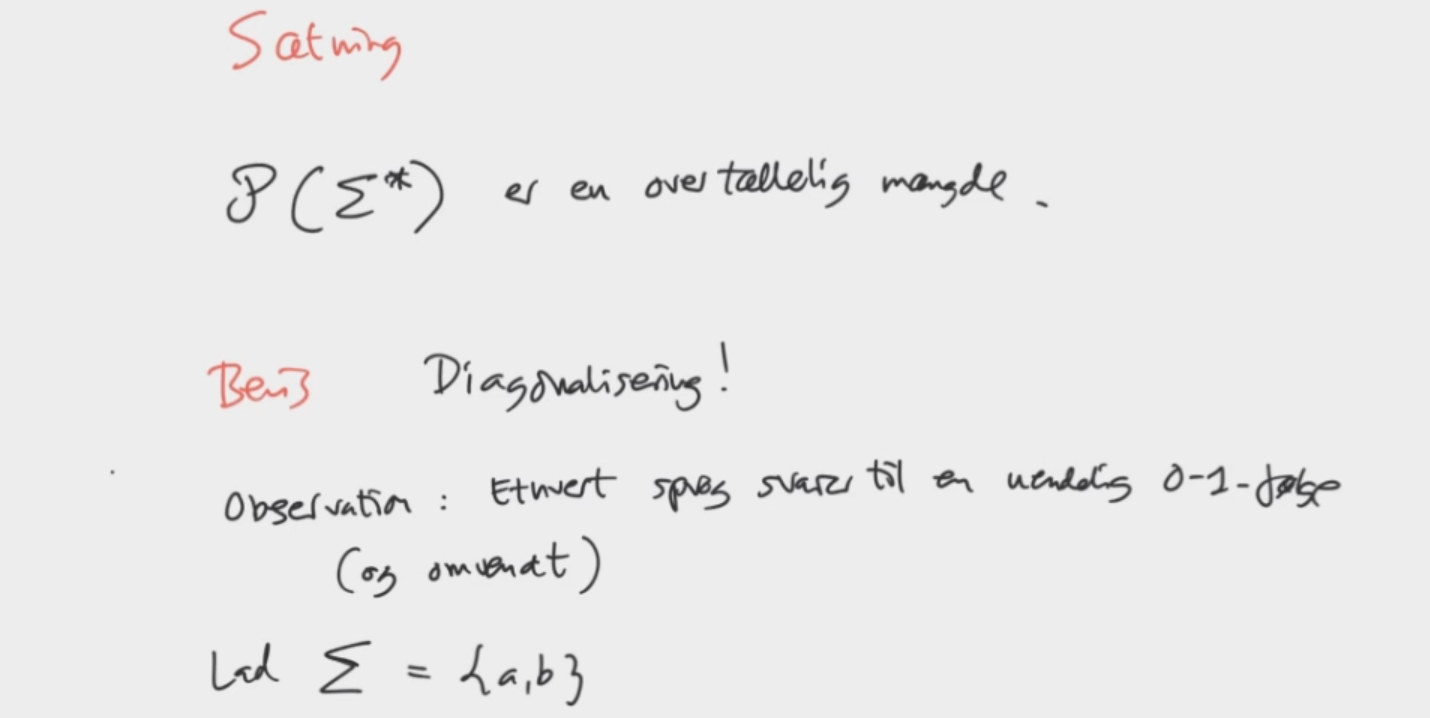 Sætning
P(Σ*) er en overtællelig mængde.
Bevis Diagonalisering!
Observation: Ethvert sprog svarer til en uendelig 0-1-følge
(og omvendt)
Lad Σ = {a,b}